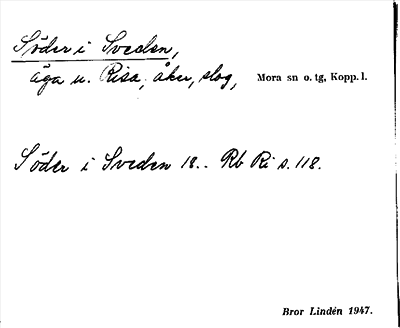 Söder i Sveden,
äga u. Risa, åker, slog, Mora sn o. tg, Kopp. l.
Söder i Sveden 18.. Rb Ri s. 118.
Bror Lindén 1947.